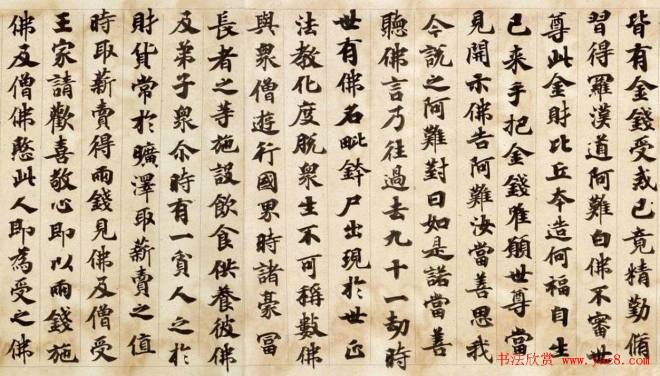 皆有金錢受戒已竟精勤脩
習得羅漢道阿難白佛不審世
尊此金財比丘夲造何福自生
已来手把金錢唯願世尊當
見開示佛告阿難汝當善思我
今說之阿難對曰如是諾當善
聽佛言乃往過去九十一劫時
世有佛名毗鉢尸出現於世正
法教化度脫衆生不可稱數佛
與衆僧遊行國界時諸豪冨
長者之等施設飲食供養彼佛
及弟子衆尒時有一貧人乏於
財貨常於曠澤取薪賣之值
時取薪賣得兩錢見佛及僧受
王家請歡喜敬心即以兩錢施
佛及僧佛愍此人即為受之佛
书法欣赏 www.yac8.com